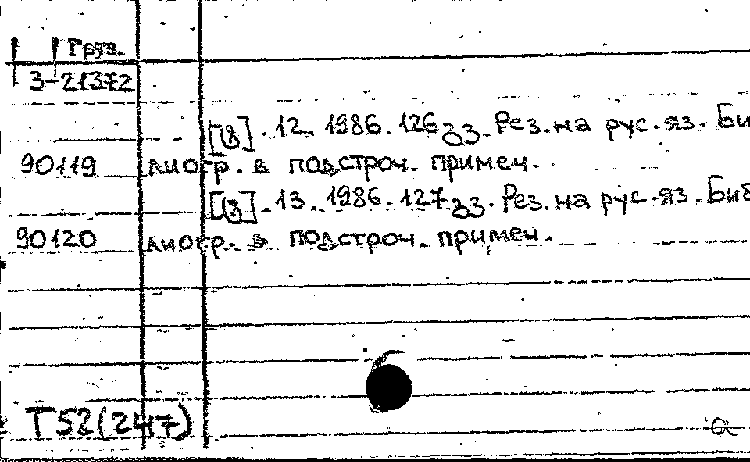 Груз.
3-21372
[ვ]. 12. 1986. 126 გვ. Рез. на рус. яз. Би
90119 лиогр. в подстроч. примеч.
[ვ]. 13. 1986. 127 გვ. Рез. на рус. яз. Биб
90120 лиогр. в подстроч. примеч.
Т52(247)